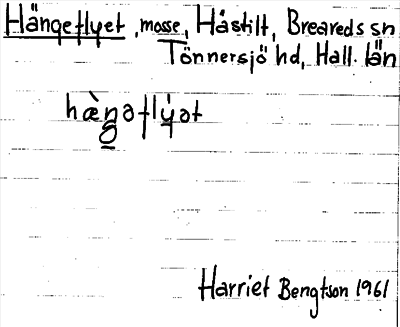 Hängeflyet, mosse, Håstilt, Breareds sn
Tönnersjö hd, Hall. län
hæ̀ŋəflý̱ət
Harriet Bengtson 1961